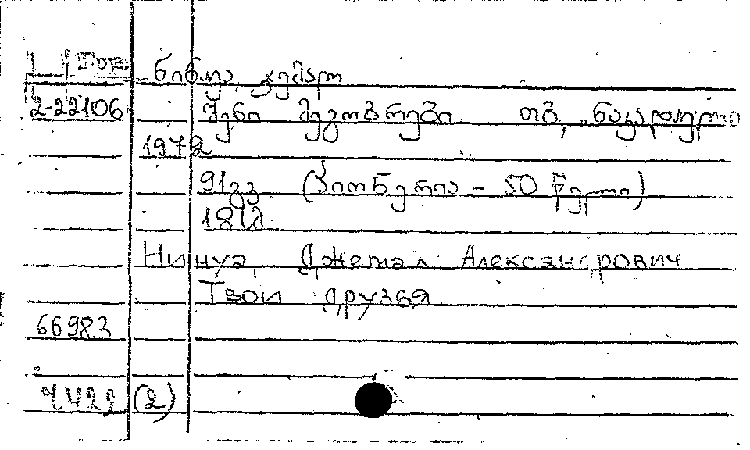 ნინუა, ჯემალ
2-22106 შენი მეგობრები თბ., „ნაკადული"
1972
91გვ (პიონერია - 50 წელი)
18კ
Нинуа, Джемал Александрович
Твои друзья
66983
(2)